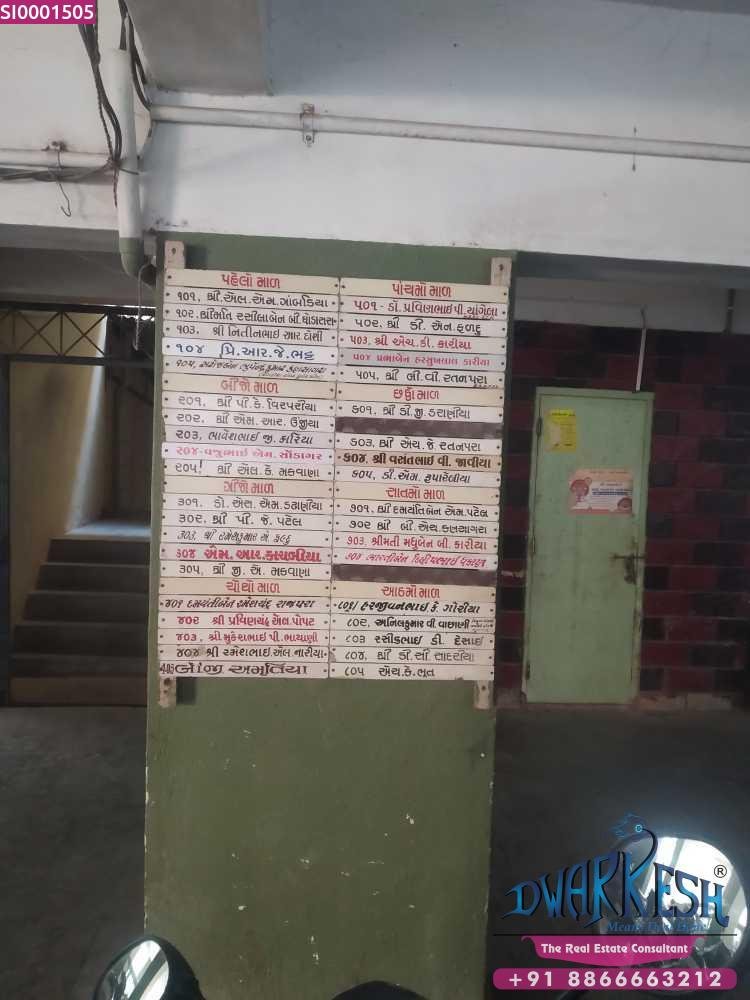 SI0001505
પહેલો માળ
૧૦૧, શ્રી એલ.એમ.ગાંભડિયા
૧૦૨, શ્રીમતિ રસીલાબેન બી.ઘોડાસરા
૧૦૩, શ્રી નિતીનભાઈ આર દોસી
૧૦૪ પ્રિ.આર.જે.ભટ્ટ
૧૦૫,
બીજો માળ
૨૦૧, શ્રી પી.કે.વિરપરીયા
૨૦૨, શ્રી એમ.આર. ઉંજીયા
૨૦૩, ભાવેશભાઈ જી. કારિયા
૨૦૪-વજુભાઈ એમ. સોંડાગર
૨૦૫! શ્રી એલ.કે. મકવાણા
ત્રીજો માળ
૩૦૧, ડો.એસ.એમ.ડઢાણીયા
૩૦૨, શ્રી પી. જે. પટેલ
૩૦૩, શ્રી રમેશકુમાર એ. ફળદુ
૩૦૪ એમ.આર.કાચબીયા
૩૦૫, શ્રી જી.એ. મકવાણા
ચોથો માળ
૪૦૧ દમયંતીબેન રમેશચંદ્ર રાજપરા
૪૦૨ શ્રી પ્રવિણચંદ્ર એલ.પોપટ
૪૦૩, શ્રી મુકેશભાઈ પી.ભાયાણી
૪૦૪ શ્રી રમેશભાઈ એલ નારીયા
૪૦૫ બી જી અમૃતિયા
પાંચમો માળ
૫૦૧ - ડૉ.પ્રવિણભાઈ પી.ચાંગેલા
૫૦૨, શ્રી ડી. એન. ફળદુ
૫૦૩, શ્રી એચ.ડી. કારીયા
૫૦૪ પ્રભાબેન હરસુખલાલ કારીયા
૫૦૫, શ્રી બી.વી. રતનપરા
છઠ્ઠો માળ
૬૦૧, શ્રી ડી.જી. ડરાણીયા
૬૦૩, શ્રી એચ. જે. રતનપરા
૬૦૪, શ્રી વસંતભાઈ વી. જાવીયા
૬૦૫, ડી.એમ. રૂપારેલીયા
સાતમો માળ
૭૦૧, શ્રી દમયંતિબેન એમ.પટેલ
૭૦૨ શ્રી બી.એચ.કણસાગરા
૭૦૩, શ્રીમતી મધુબેન બી. કારીયા
૭૦૪ ભારતીબેન દિલીપભાઈ
આઠમો માળ
૮૦૧/ હરજીવનભાઈ કે. ગોરીયા
૮૦૨, અનિલકુમાર વી વાછાણી
૮૦૩ રસીકભાઈ ડી. દેસાઈ
૮૦૪, શ્રી ડી.સી. સાદરીયા
૮૦૫ એચ.કે.ભૂત
DWARKESH®
The Real Estate Consultant
+91 8866663212